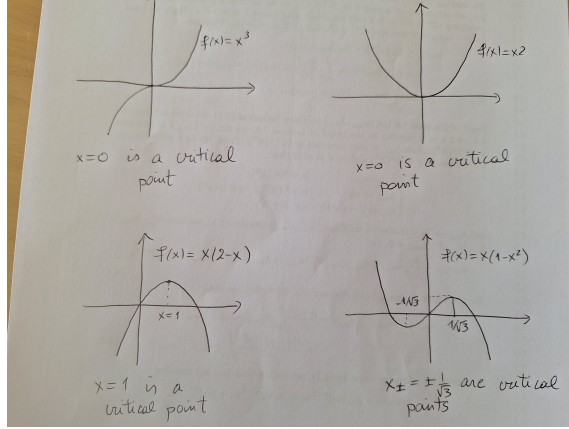 f(x)=x³
f(x)=x2
x=0 is a critical
point
x=0 is a critical
point
f(x)= x(2-x)
x=1
x=1 is a
critical point
f(x)=x(1-x²)
-1/√3
1/√3
x± = ± 1/√3 are critical
points